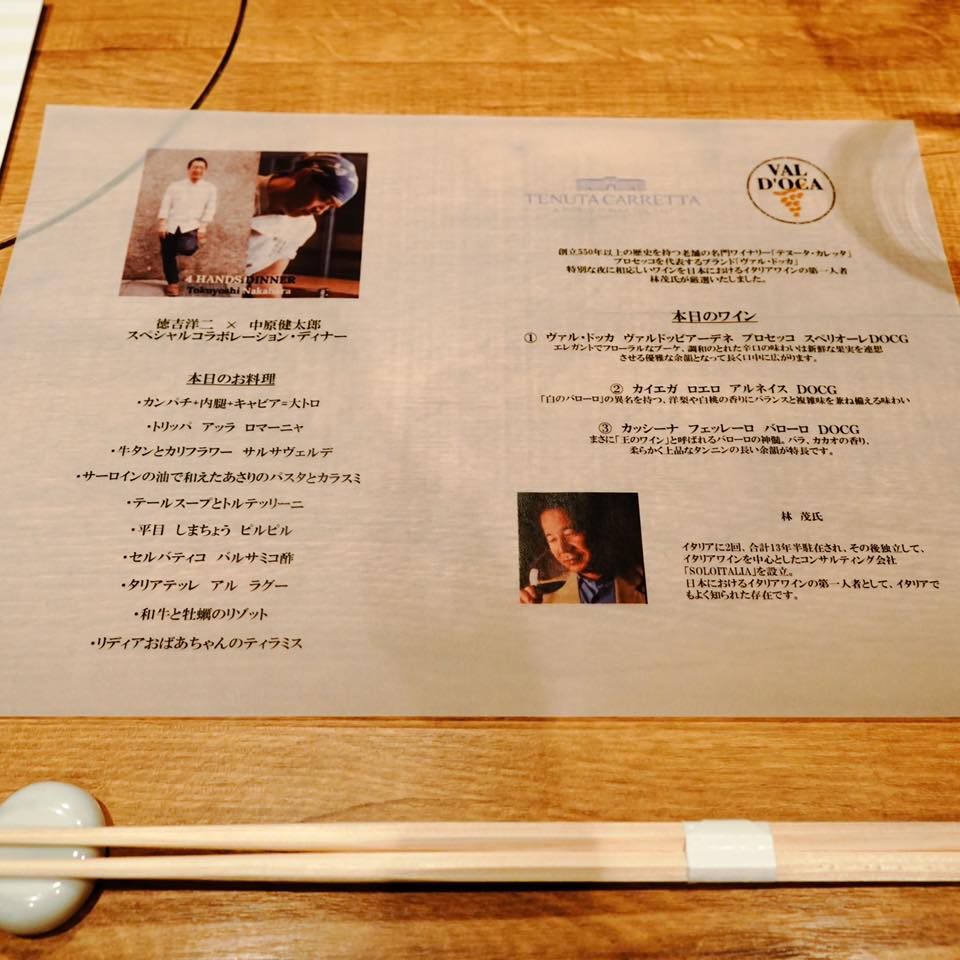 4 HANDS DINNER
Tokuyoshi Nakahara
徳吉洋二 × 中原健太郎
スペシャルコラボレーション・ディナー
本日のお料理
・カンパチ+内腿+キャビア=大トロ
・トリッパ アッラ ロマーニャ
・牛タンとカリフラワー サルサヴェルデ
・サーロインの油で和えたあさりのパスタとカラスミ
・テールスープとトルテッリーニ
・平目 しまちょう ピルピル
・セルバティコ バルサミコ酢
・タリアテッレ アル ラグー
・和牛と牡蠣のリゾット
・リディアおばあちゃんのティラミス
TENUTA CARRETTA
VAL
D'OCA
創立550年以上の歴史を持つ老舗の名門ワイナリー「テヌータ・カレッタ」
プロセッコを代表するブランド「ヴァル・ドッカ」
特別な夜に相応しいワインを日本におけるイタリアワインの第一人者
林茂氏が厳選いたしました。
本日のワイン
① ヴァル・ドッカ ヴァルドッビアーデネ プロセッコ スペリオーレDOCG
エレガントでフローラルなブーケ、調和のとれた辛口の味わいは新鮮な果実を連想
させる優雅な余韻となって長く口中に広がります。
② カイエガ ロエロ アルネイス DOCG
「白のバローロ」の異名を持つ、洋梨や白桃の香りにバランスと複雑味を兼ね備える味わい
③ カッシーナ フェッレーロ バローロ DOCG
まさに「王のワイン」と呼ばれるバローロの神髄。バラ、カカオの香り、
柔らかく上品なタンニンの長い余韻が特長です。
林 茂氏
イタリアに2回、合計13年半駐在され、その後独立して、
イタリアワインを中心としたコンサルティング会社
「SOLOITALIA」を設立。
日本におけるイタリアワインの第一人者として、イタリアで
もよく知られた存在です。